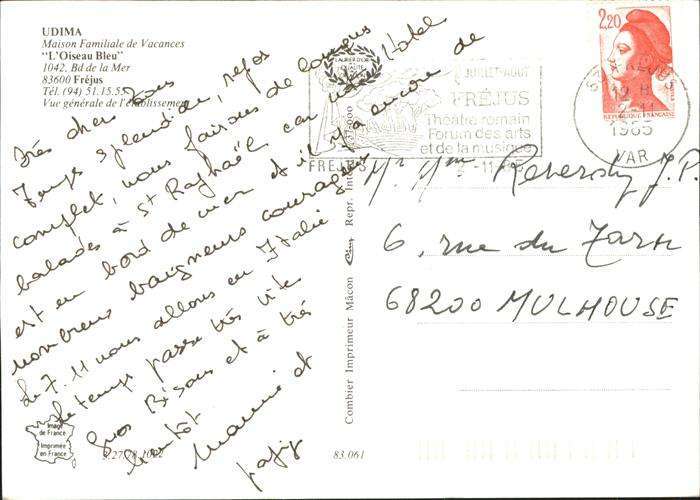 UDIMA
Maison Familiale de Vacances
"L'Oiseau Bleu"
1042, Bd de la Mer
83600 Fréjus
Tél. (94) 51.15.55
Vue générale de l'établissement
Très chers tous
Temps splendian, repos
complet, nous faisons de longues
balades à St Raphaël car notre hôtel
est en bord de mer et il y a encore de
nombreux baigneurs courageux
Le 7.11 nous allons en Italie
Le temps passe très vite
Gros Bisous et à très
bientôt
Mamie et
papy
Image
de France
Imprimée
en France
83.061
Combier Imprimeur Mâcon
Repr. Int
JUILLET-AOÛT
FRÉJUS
Théâtre romain
Forum des arts
et de la musique
FRÉJUS
2-11
1985
VAR
2,20
REPUBLIQUE FRANÇAISE
Mr Mme Reversky J.P.
6, rue du Tarn
68200 MULHOUSE